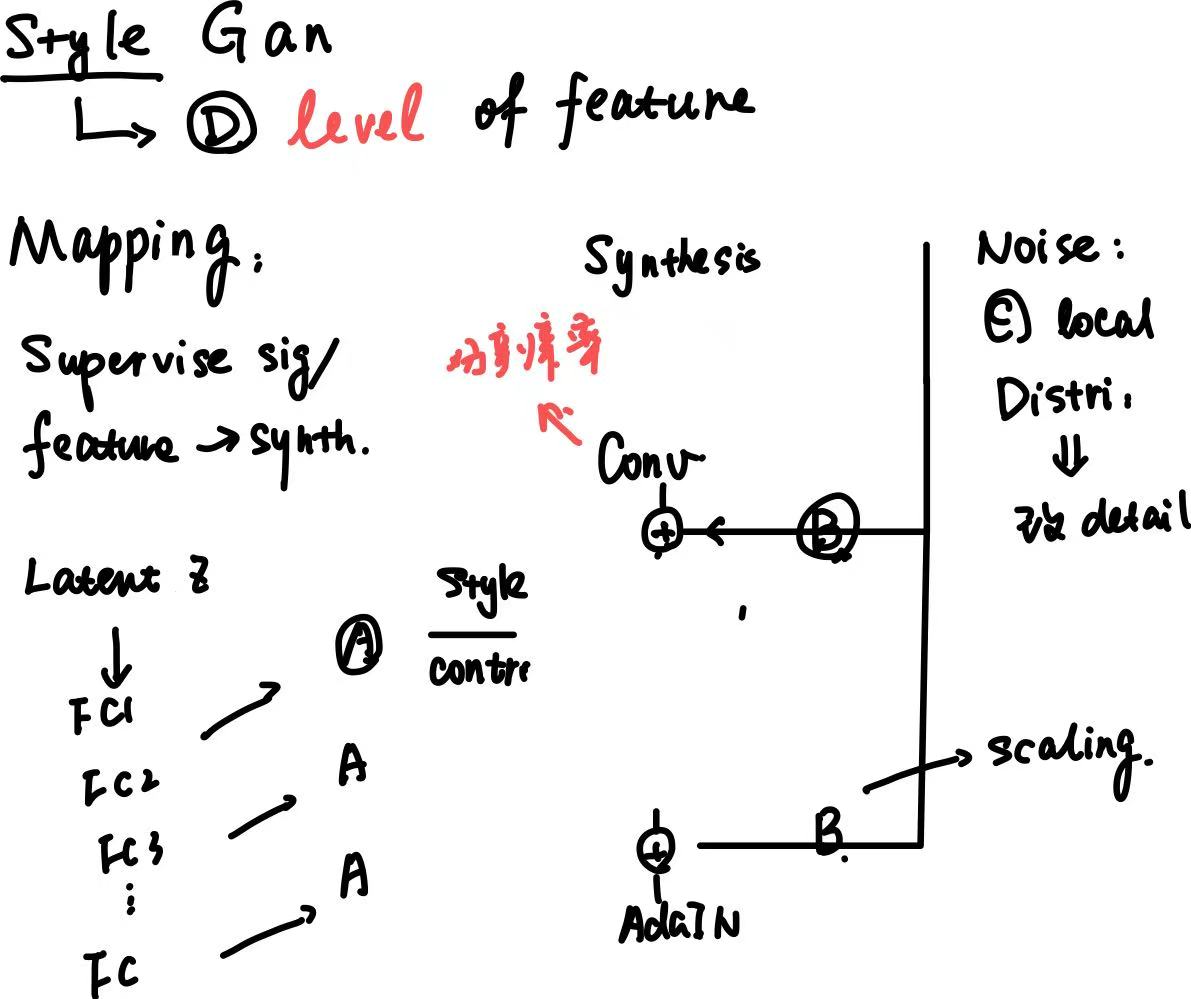 Style Gan
D level of feature
Mapping:
Supervise sig/
feature → synth.
Latent Z
↓
FC1
FC2
FC3
⋮
FC
A
A
A
Style
contr
Synthesis
Conv
+
B
+
B
AdaIN
Noise:
local
Distri:
⇓
改 detail
scaling.